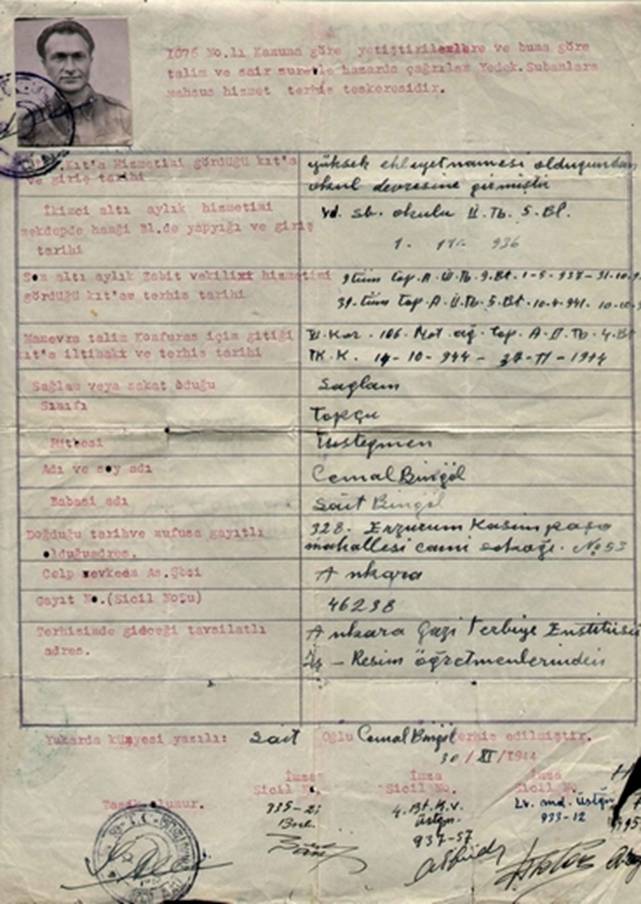 1076 No.lı Kanuna göre yetiştirilenlere ve buna göre
talim ve sair suretle hazarda çağrılan Yedek.Subaylara
mahsus hizmet terhis teskeresidir.
Kıt'a Hizmetini gördüğü kıt'a
ve giriş tarihi
yüksek ehliyetnamesi olduğundan
okul devresine girmiştir
İkinci altı aylık hizmetini
mekdepde hangi Bl.de yapyığı ve giriş
tarihi
Yd. sb. okulu II. Tb. 5. Bl.
1. 936
Son altı aylık Zabit vekilixi hizmetini
gördüğü kıt'aw terhis tarihi
9 tüm top. A. II. Tb. 9. Bt. 1-5-937-31-10-9
Top. A. II. Tb. 5. Bt. 10-4-941. 10-
Manevra talim Konferas için gitiği
kıt'a iltihakı ve terhis tarihi
Kor. 106. Mot. ağ. top. A. II. Tb. 4. Bt
K. 14-10-944 - -11-1944
Sağlam veya sakat öduğu
Sağlam
Sınıfı
Topçu
Rütbesi
Üsteğmen
Adı ve soy adı
Cemal Bingöl
Babasi adı
Sait Bingöl
Doğduğu tarihve nufusa gayıtlı
olduğuadres.
328. Erzurum Kasımpaşa
mahallesi cami sokağı. No 53
Celp sevkeden As.Şbsi
Ankara
Gayıt No.(Sicil Nosu)
46238
Terhisinde gideceği tavsilatlı
adres.
Ankara Gazi Terbiye Enstitüsü
İş - Resim öğretmenlerinden
Yukarda künyesi yazılı: Sait Oğlu Cemal Bingöl terhis edilmiştir.
30/XI/1944
İmza İmza İmza
Sicil N. Sicil No. Sicil No.
Tasdik olunur.
4. Bt. K. v.
Üstğm.
937-57
Lv. md. Üstğm.
933-12